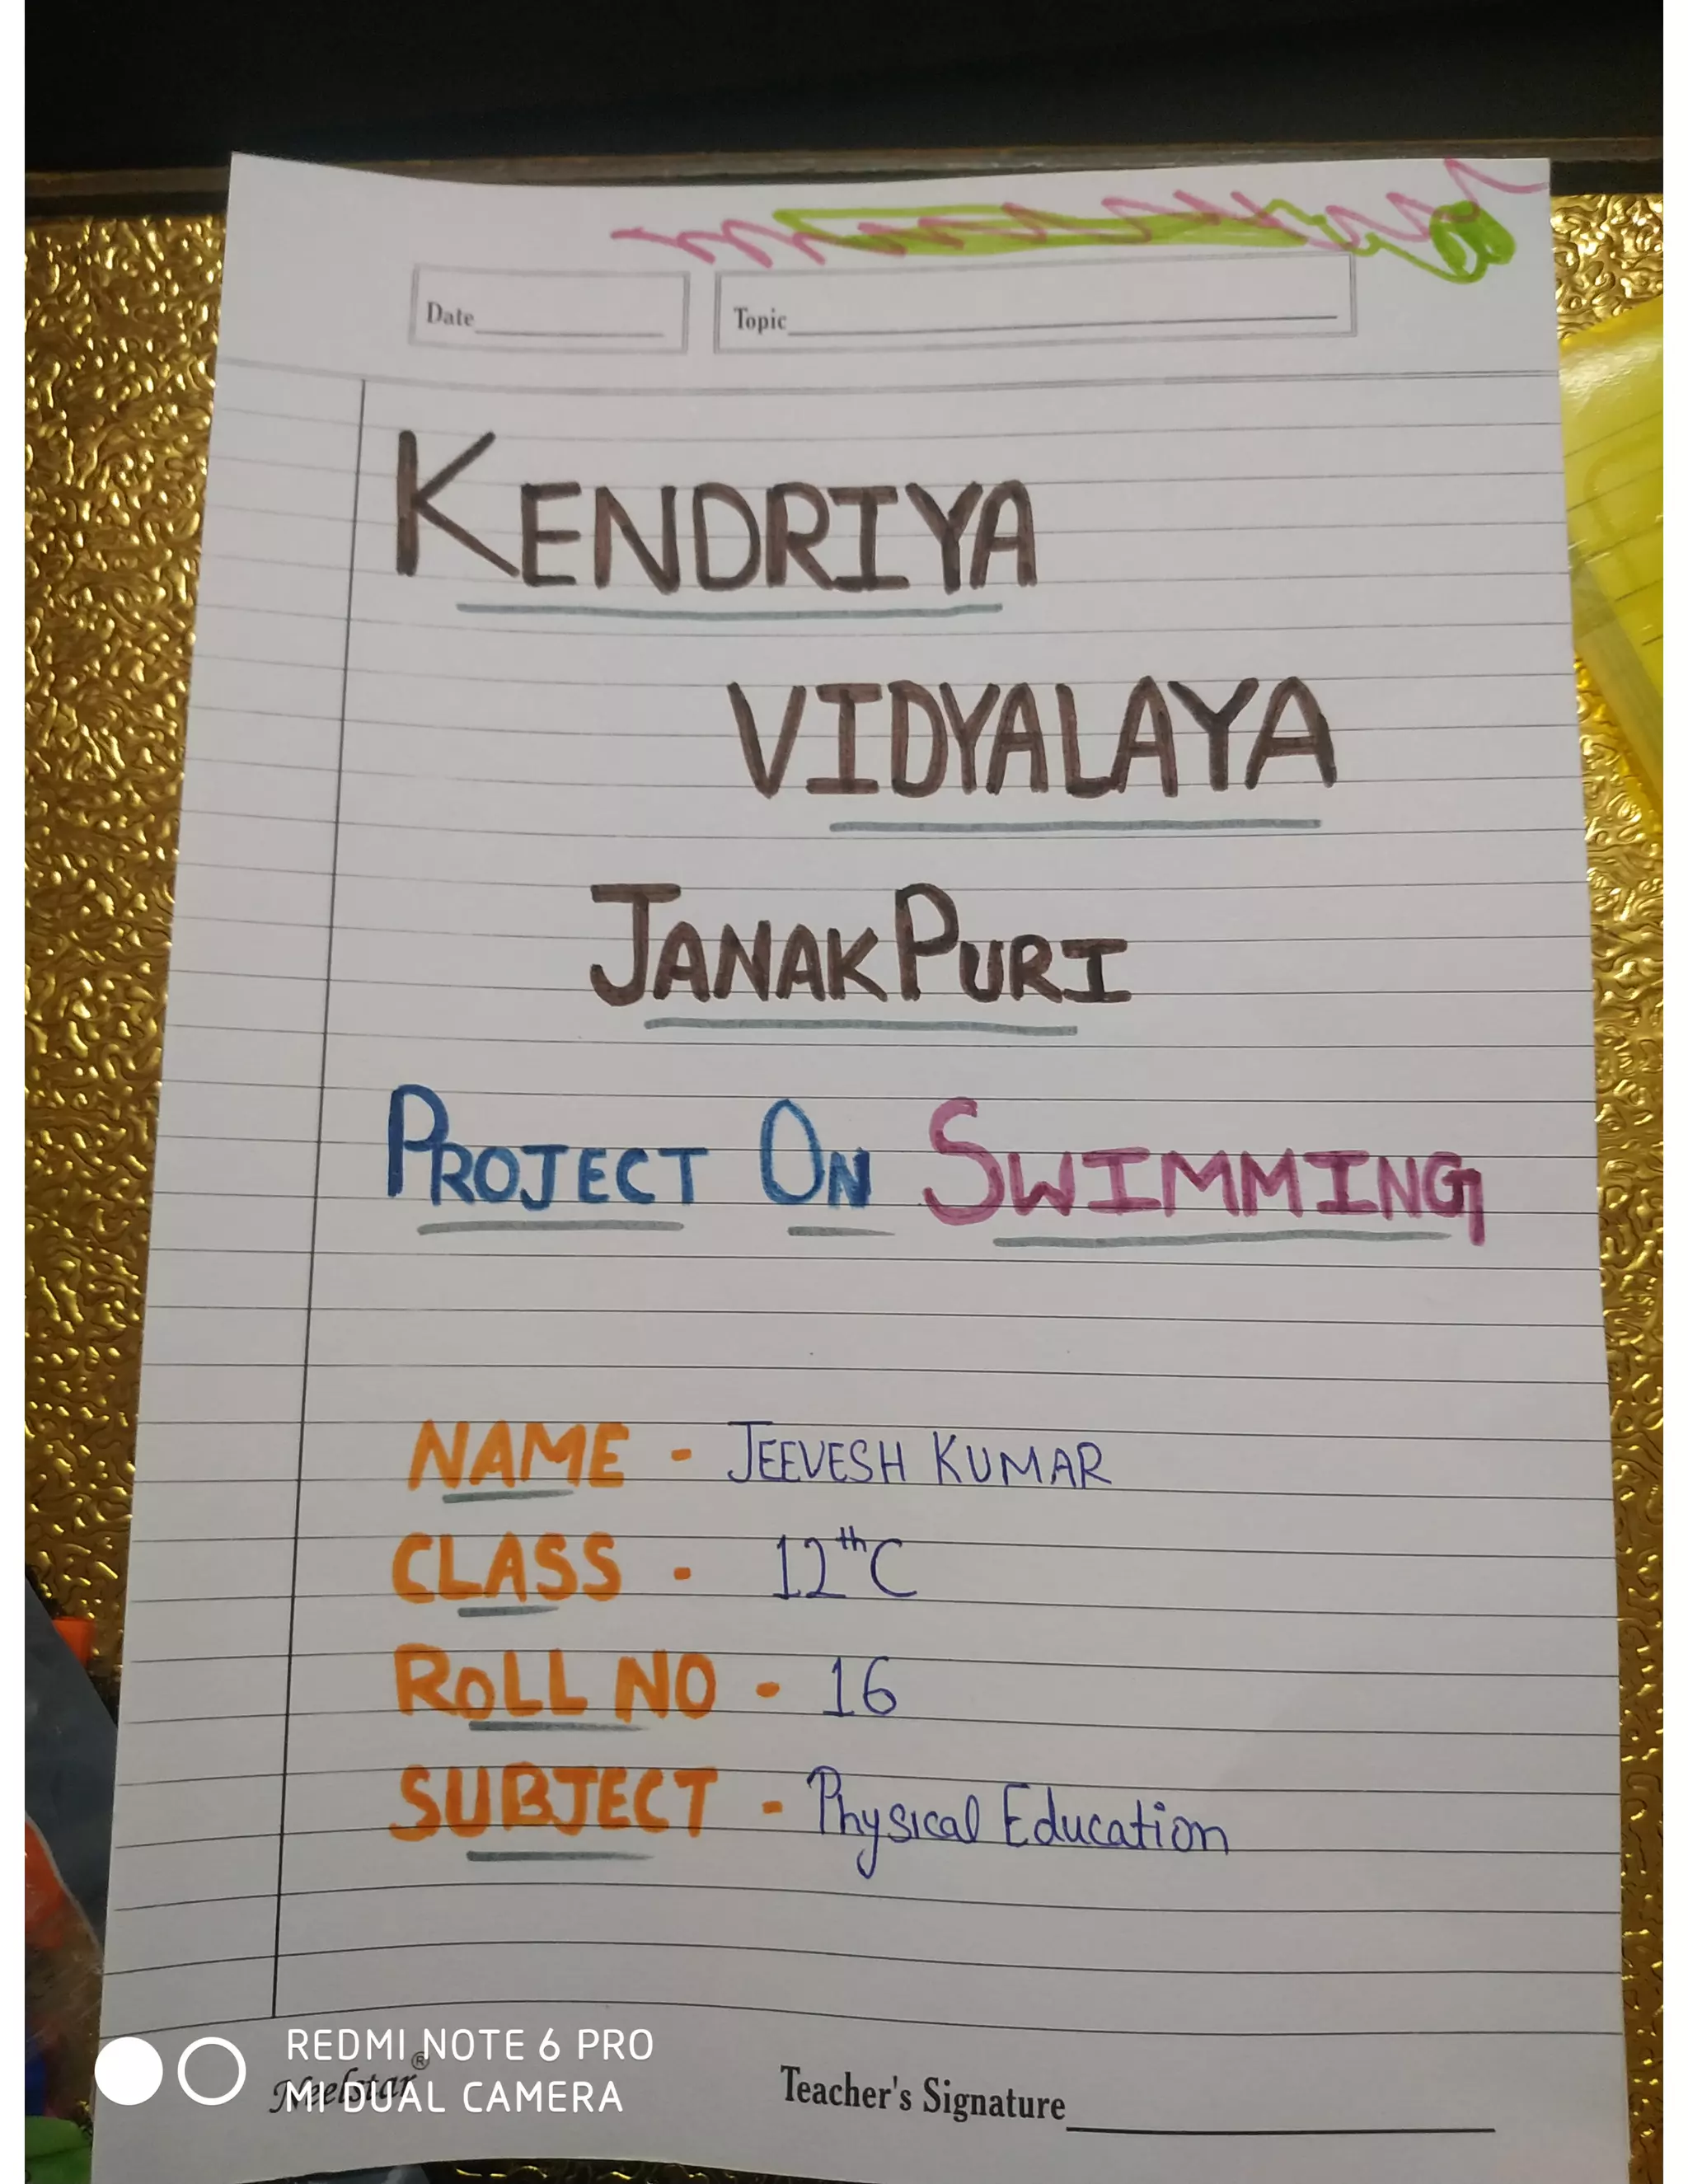 Date
Topic
KENDRIYA
VIDYALAYA
JANAKPURI
PROJECT ON SWIMMING
NAME - JEEVESH KUMAR
CLASS - 12th C
ROLL NO - 16
SUBJECT - Physical Education
REDMI NOTE 6 PRO
Neelstar®
MI DUAL CAMERA
Teacher's Signature